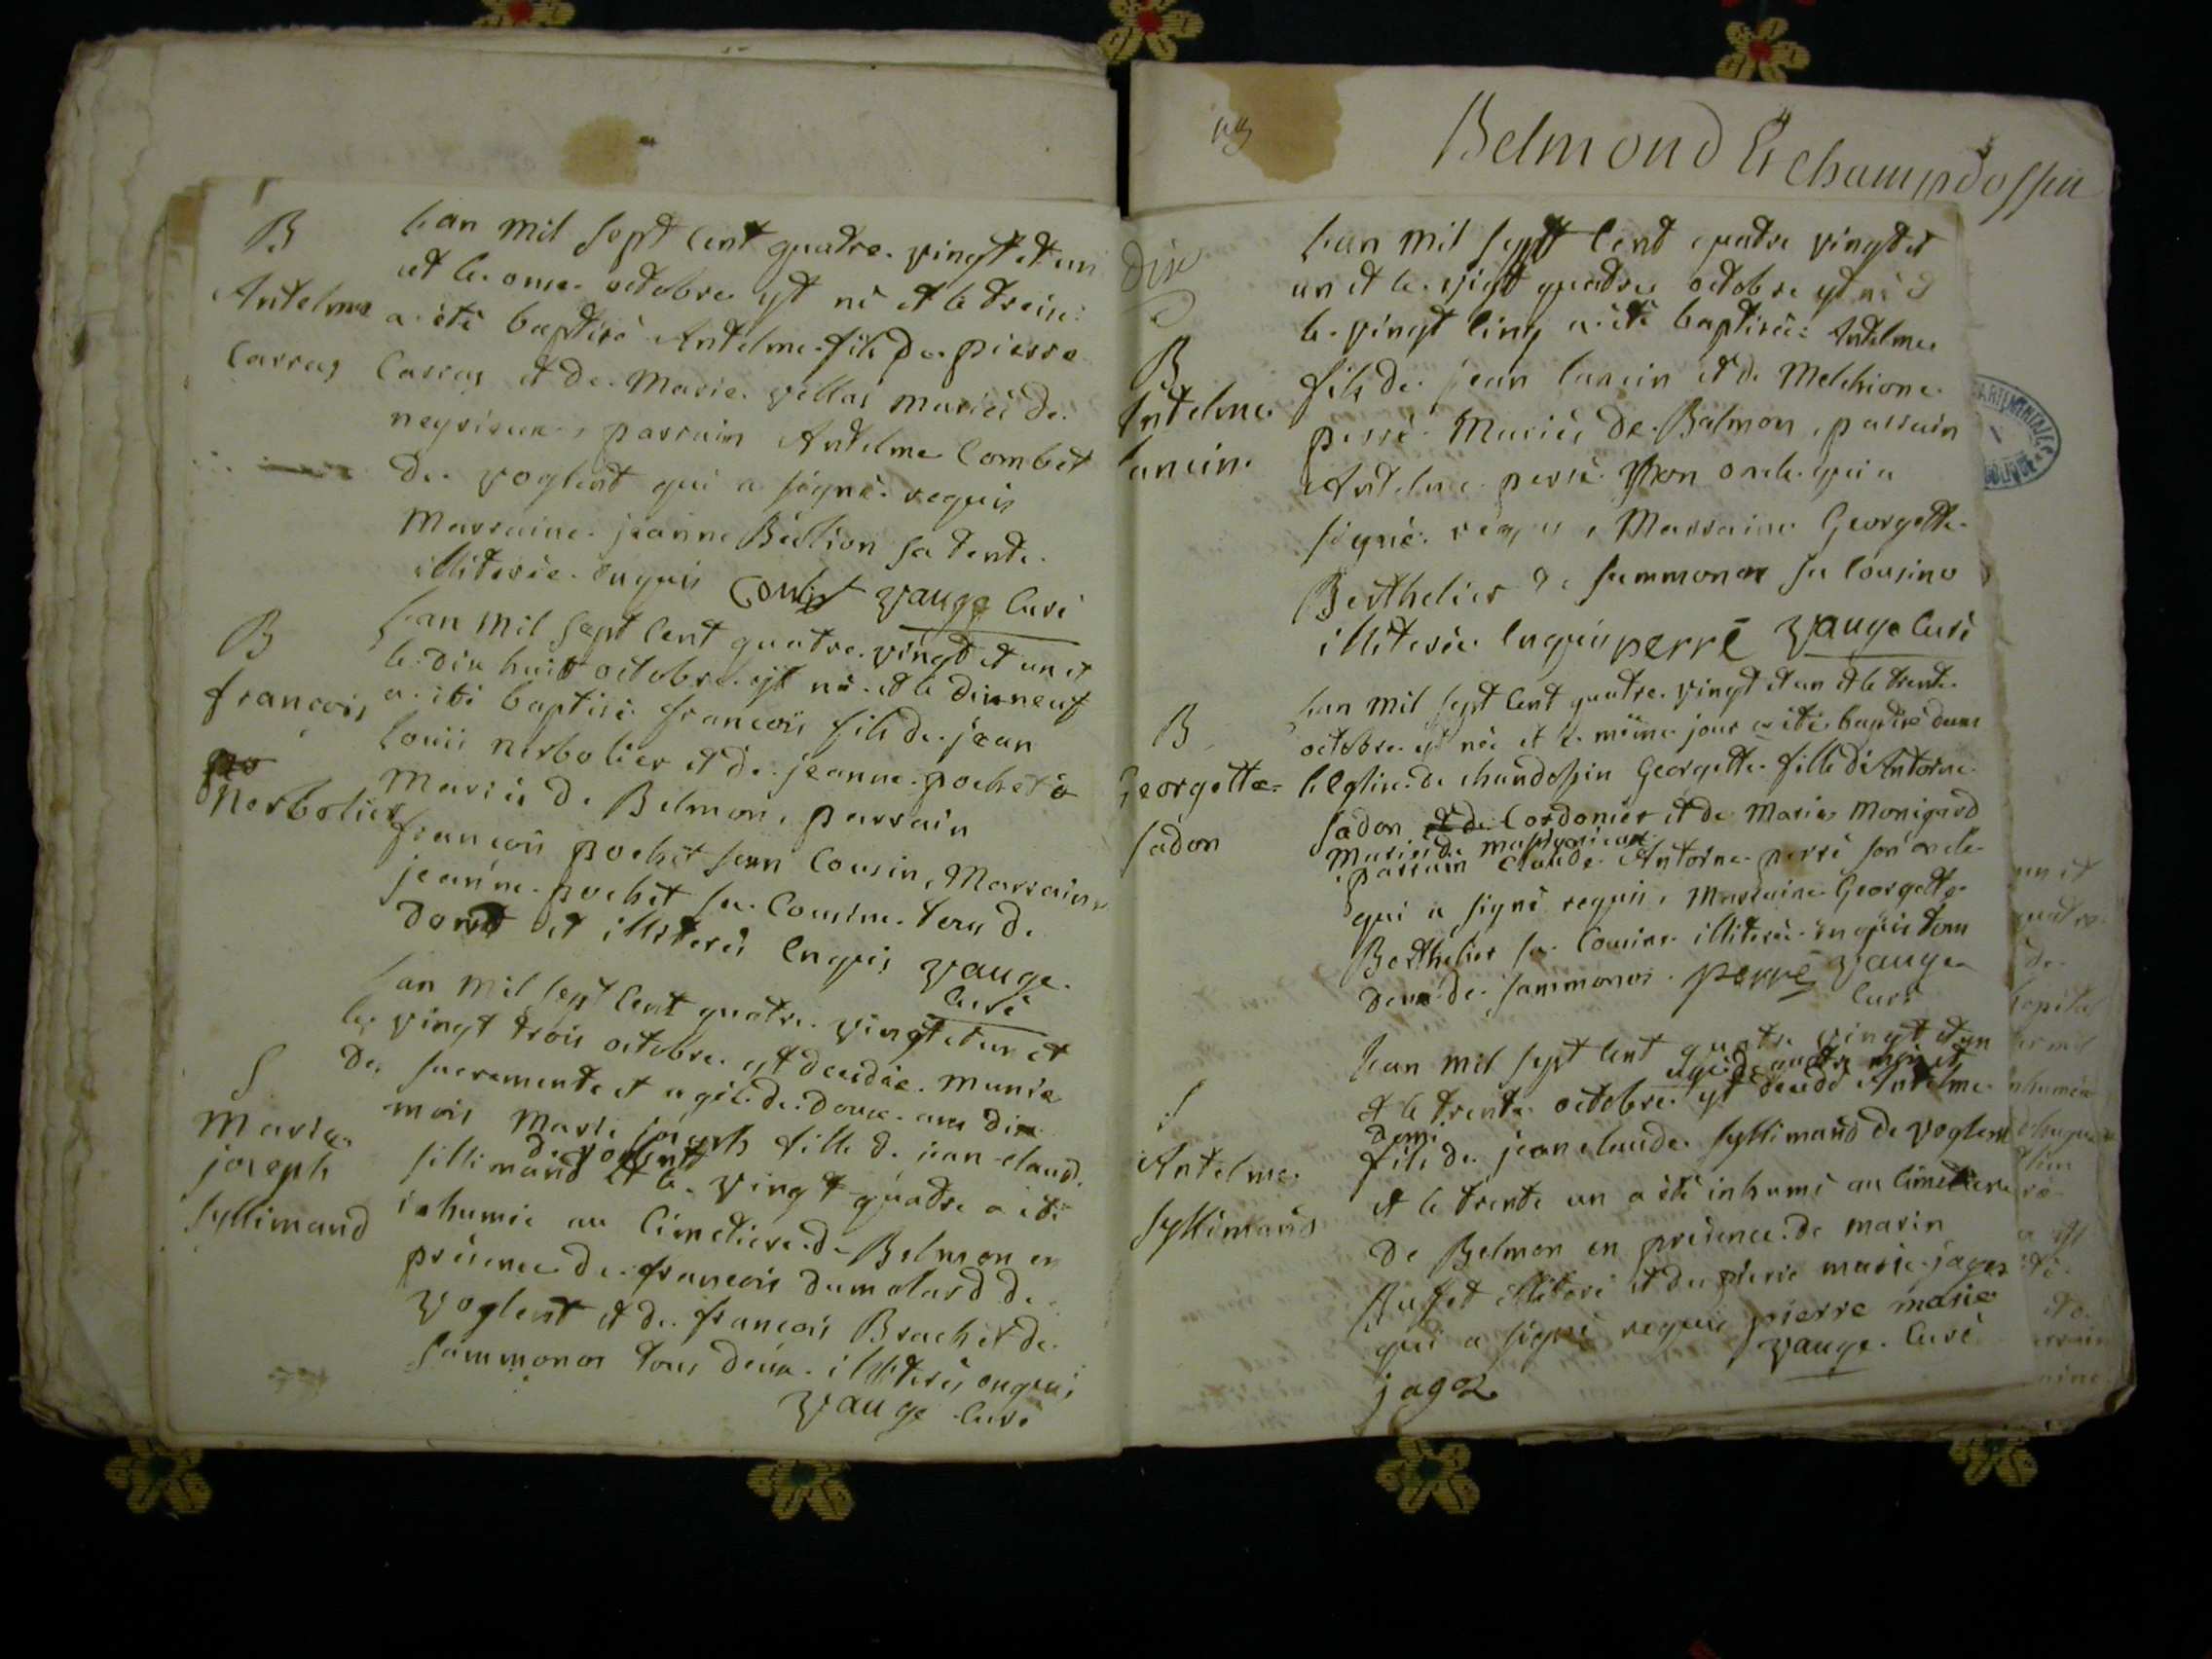 B
Antelme
Carras
Lan mil sept cent quatre vingt et un
et le onse octobre yt né et le treise
a été baptisé Antelme fils de pierre
Carras et de Marie vellas mariés de
neyrieux, parrain Antelme Combet
de voglent qui a signé requis
Marraine jeanne Billion sa tente
illiterée enquis Combet vauge Curé
B
françois
Nerbolier
Lan mil sept cent quatre vingt et un et
le dix huit octobre yt né et le dix neuf
a été baptisé françois fils de jean
Louis nerbolier et de jeanne pochet
Mariés de Belmon, parrain
françois pochet son Cousin, Marraine
jeanne pochet sa Cousine tous de
et illiterés enquis vauge
Curé
S
Marie
joseph
syllimand
Lan mil sept cent quatre vingt et un et
le vingt trois octobre yt decedée munie
des sacrements et agée de douse ans dix
mois Marie joseph fille de jean claude
de voglent
sillimand et le vingt quatre a été
inhumée au Cimetiere de Belmon en
présence de françois dumolard de
voglent et de françois Brachet de
sammonor tous deux illiterés enquis
vauge Curé
Belmond Et champdossin
dix
B
Antelme
Lancin
Lan mil sept cent quatre vingt et
un et le vigt quatre octobre yt né et
le vingt cinq a été baptisé Antelme
fils de jean Lancin et de Melchione
perré Mariés de Balmon, parrain
Antelme perré son oncle qui a
signé requis, Marraine Georgette
Berthelier de sammonor sa Cousine
illiterée enquis perré vauge Curé
B
Georgette
sadon
Lan mil sept cent quatre vingt et un et le trente
octobre yt née et le même jour a été baptisé dans
l'eglise de chandossin Georgette fille d'Antoine
sadon et de Cordonier et de Marie Monigard
Mariés de massignieux
parrain Claude Antoine perré son oncle
qui a signé requis, Marraine Georgette
Berthelier sa Cousine illiterée enquis tous
deux de sammonor perré vauge
Curé
S
Antelme
syllimand
Lan mil sept cent quatre vingt et un
agé de quatre mois et
et le trente octobre yt decedé Antelme
demi
fils de jean claude syllimand de voglent
et le trente un a été inhumé au Cimetiere
de Belmon en présence de marin
Buffet illiteré et de pierre marie jager
qui a signé requis pierre marie
vauge Curé
jagz